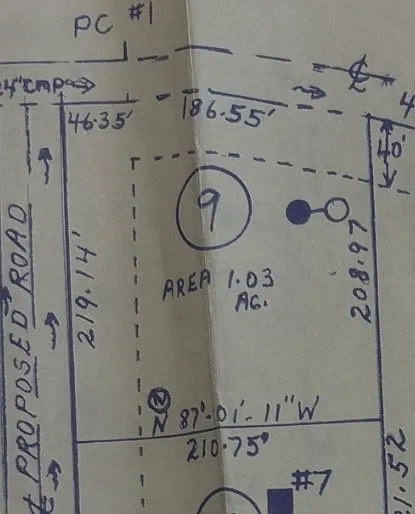 PC #1
24" CMP
46.35'
186.55'
40'
9
219.14'
208.97
AREA 1.03
AC.
PROPOSED ROAD
N 87'-01'-11"W
210.75'
#7